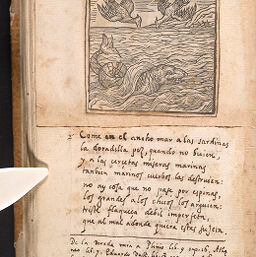 Come en el ancho mar a las sardinas
la doradilla pez, quando no buien,
y a las cercetas miseras marinas
tambien marinos cuerbos las destruien:
no ay cosa que no pase por espinas,
los grandes a los chicos los arguien:
triste flaqueza debil imperfeta,
que al mal adonde quiera estas sujeta.
De la Dorada mira a Plinio lib. 9. cap. 16.
lib. 7.